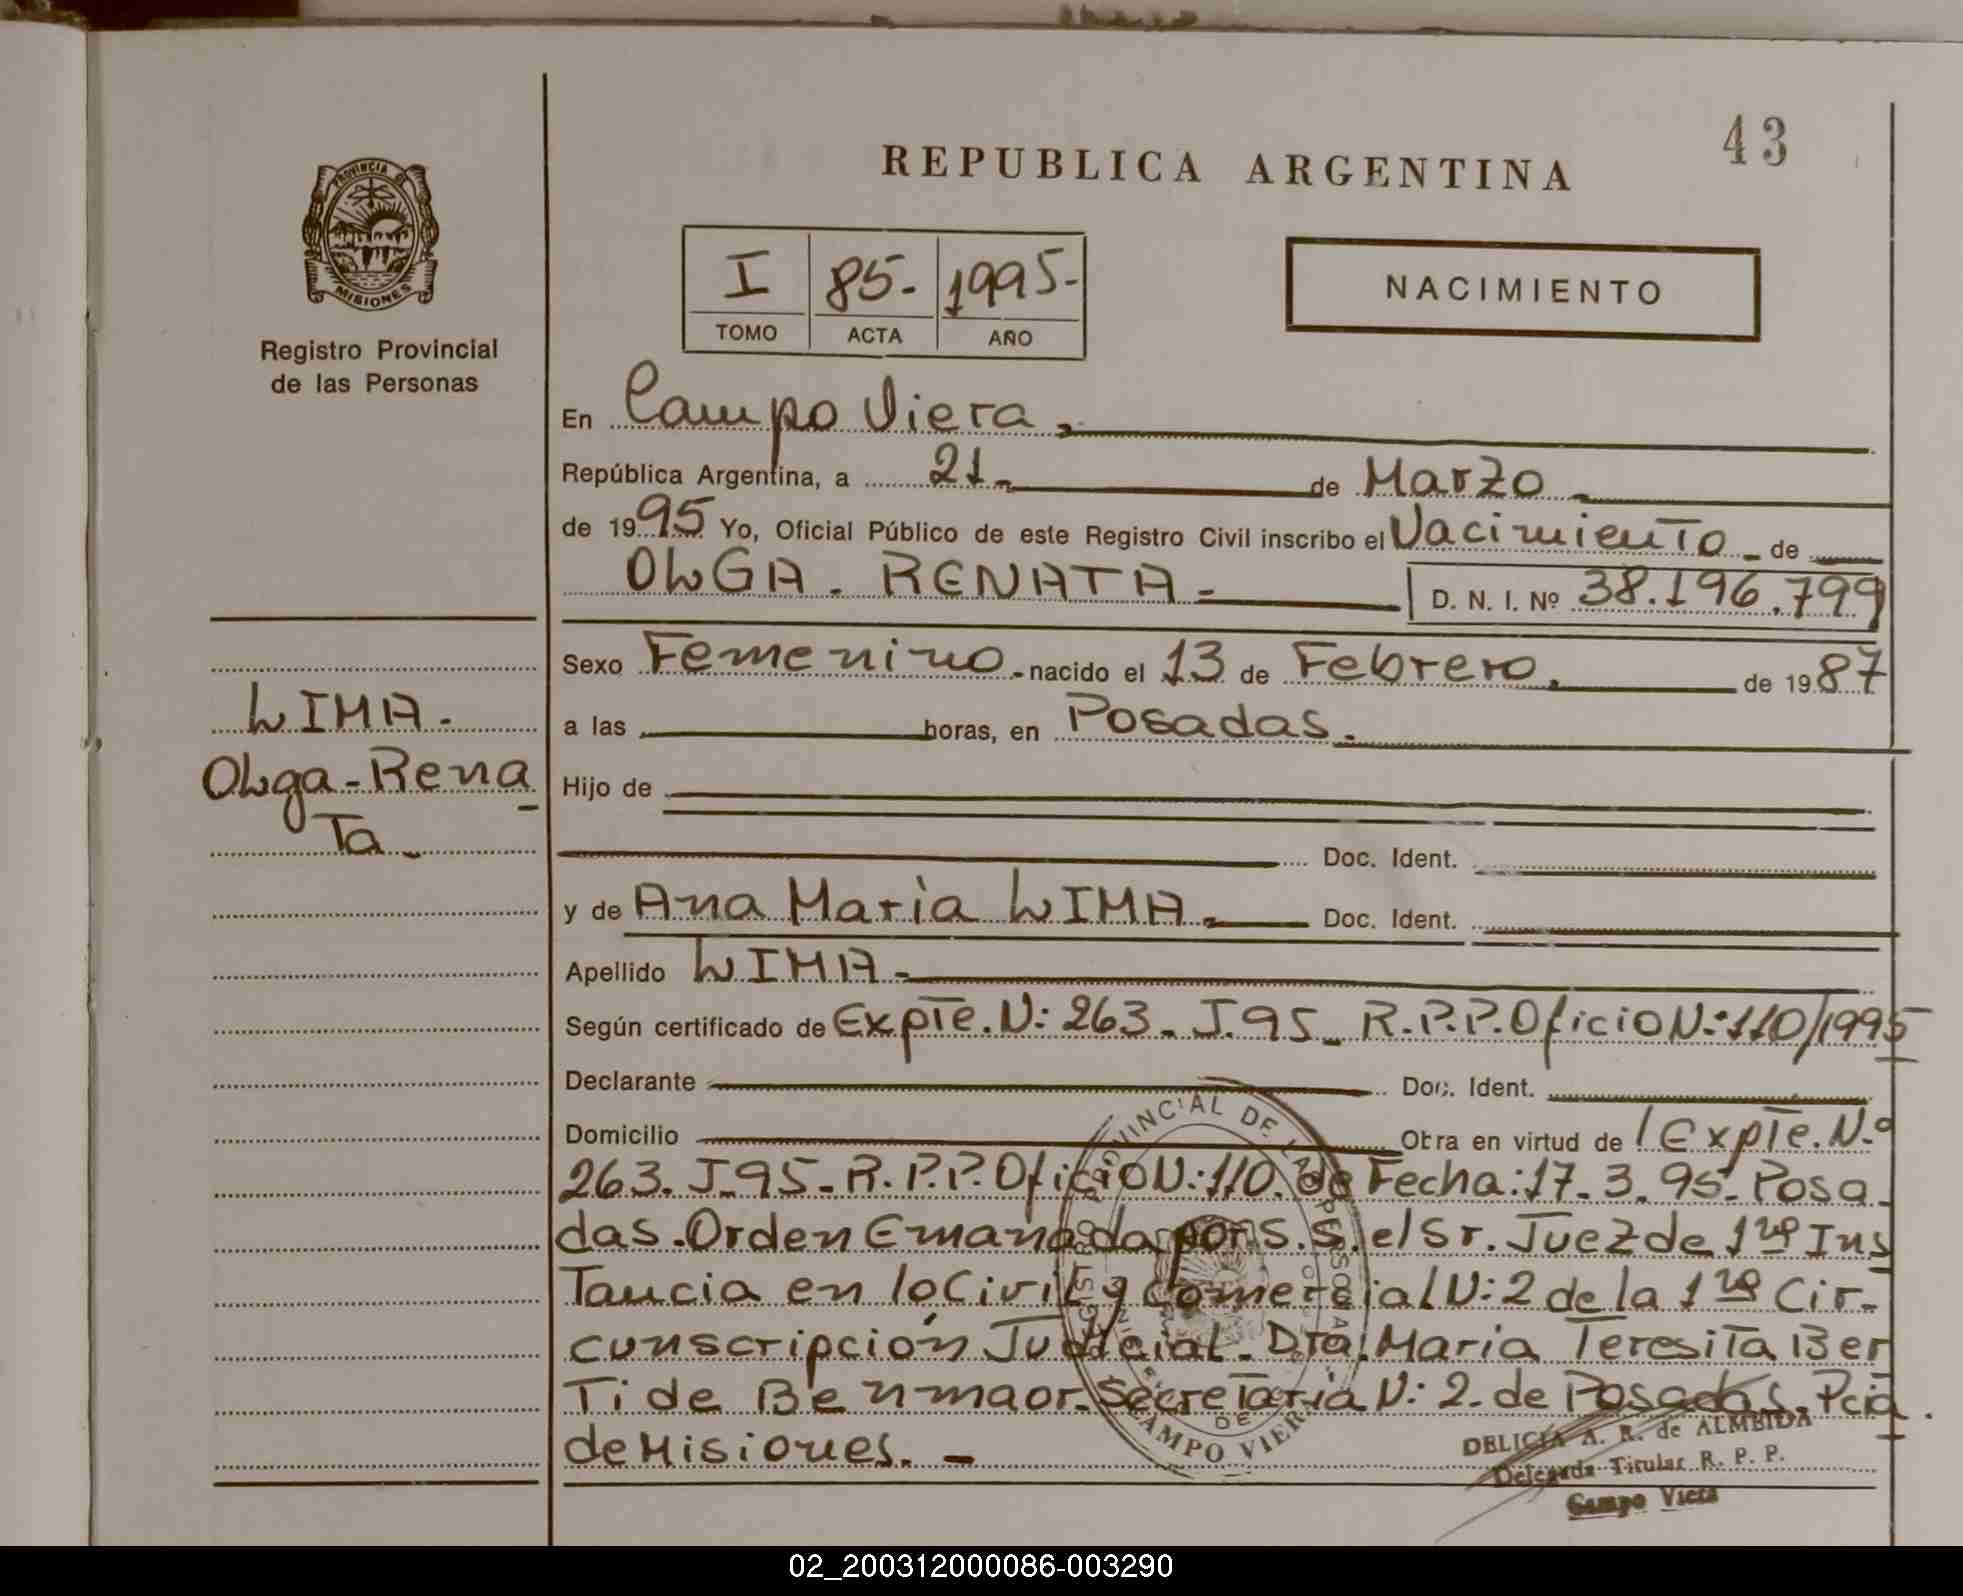 43
REPUBLICA ARGENTINA
PROVINCIA DE
MISIONES
Registro Provincial
de las Personas
I 85.- 1995.-
TOMO ACTA AÑO
NACIMIENTO
En Campo Viera.
República Argentina, a 21 de Marzo
de 1995 Yo, Oficial Público de este Registro Civil inscribo el Nacimiento de
OLGA. RENATA D. N. I. Nº 38.196.799
Sexo Femenino nacido el 13 de Febrero de 1987
a las horas, en Posadas.
Hijo de
Doc. Ident.
y de Ana María LIMA. Doc. Ident.
Apellido LIMA.
Según certificado de Expte. N: 263. J.95_ R.P.P. Oficio N:110/1995
Declarante Doc. Ident.
Domicilio Otra en virtud de Expte. Nº
263. J.95. R.P.P. Oficio N:110. de Fecha:17.3.95. Posa
das. Orden Emanada por S.S. el Sr. Juez de 1ra Ins
Tancia en lo Civil y Comercial N:2 de la 1ra Cir-
cunscripción Judicial. Dra. María Teresita Ber
Ti de Benmaor. Secretaría N: 2. de Posadas. Pcia.
de Misiones.
LIMA.
Olga-Rena
Ta
CAMPO VIERA
DELICIA A. R. de ALMEIDA
Delegada Titular R. P. P.
Campo Viera
02_200312000086-003290